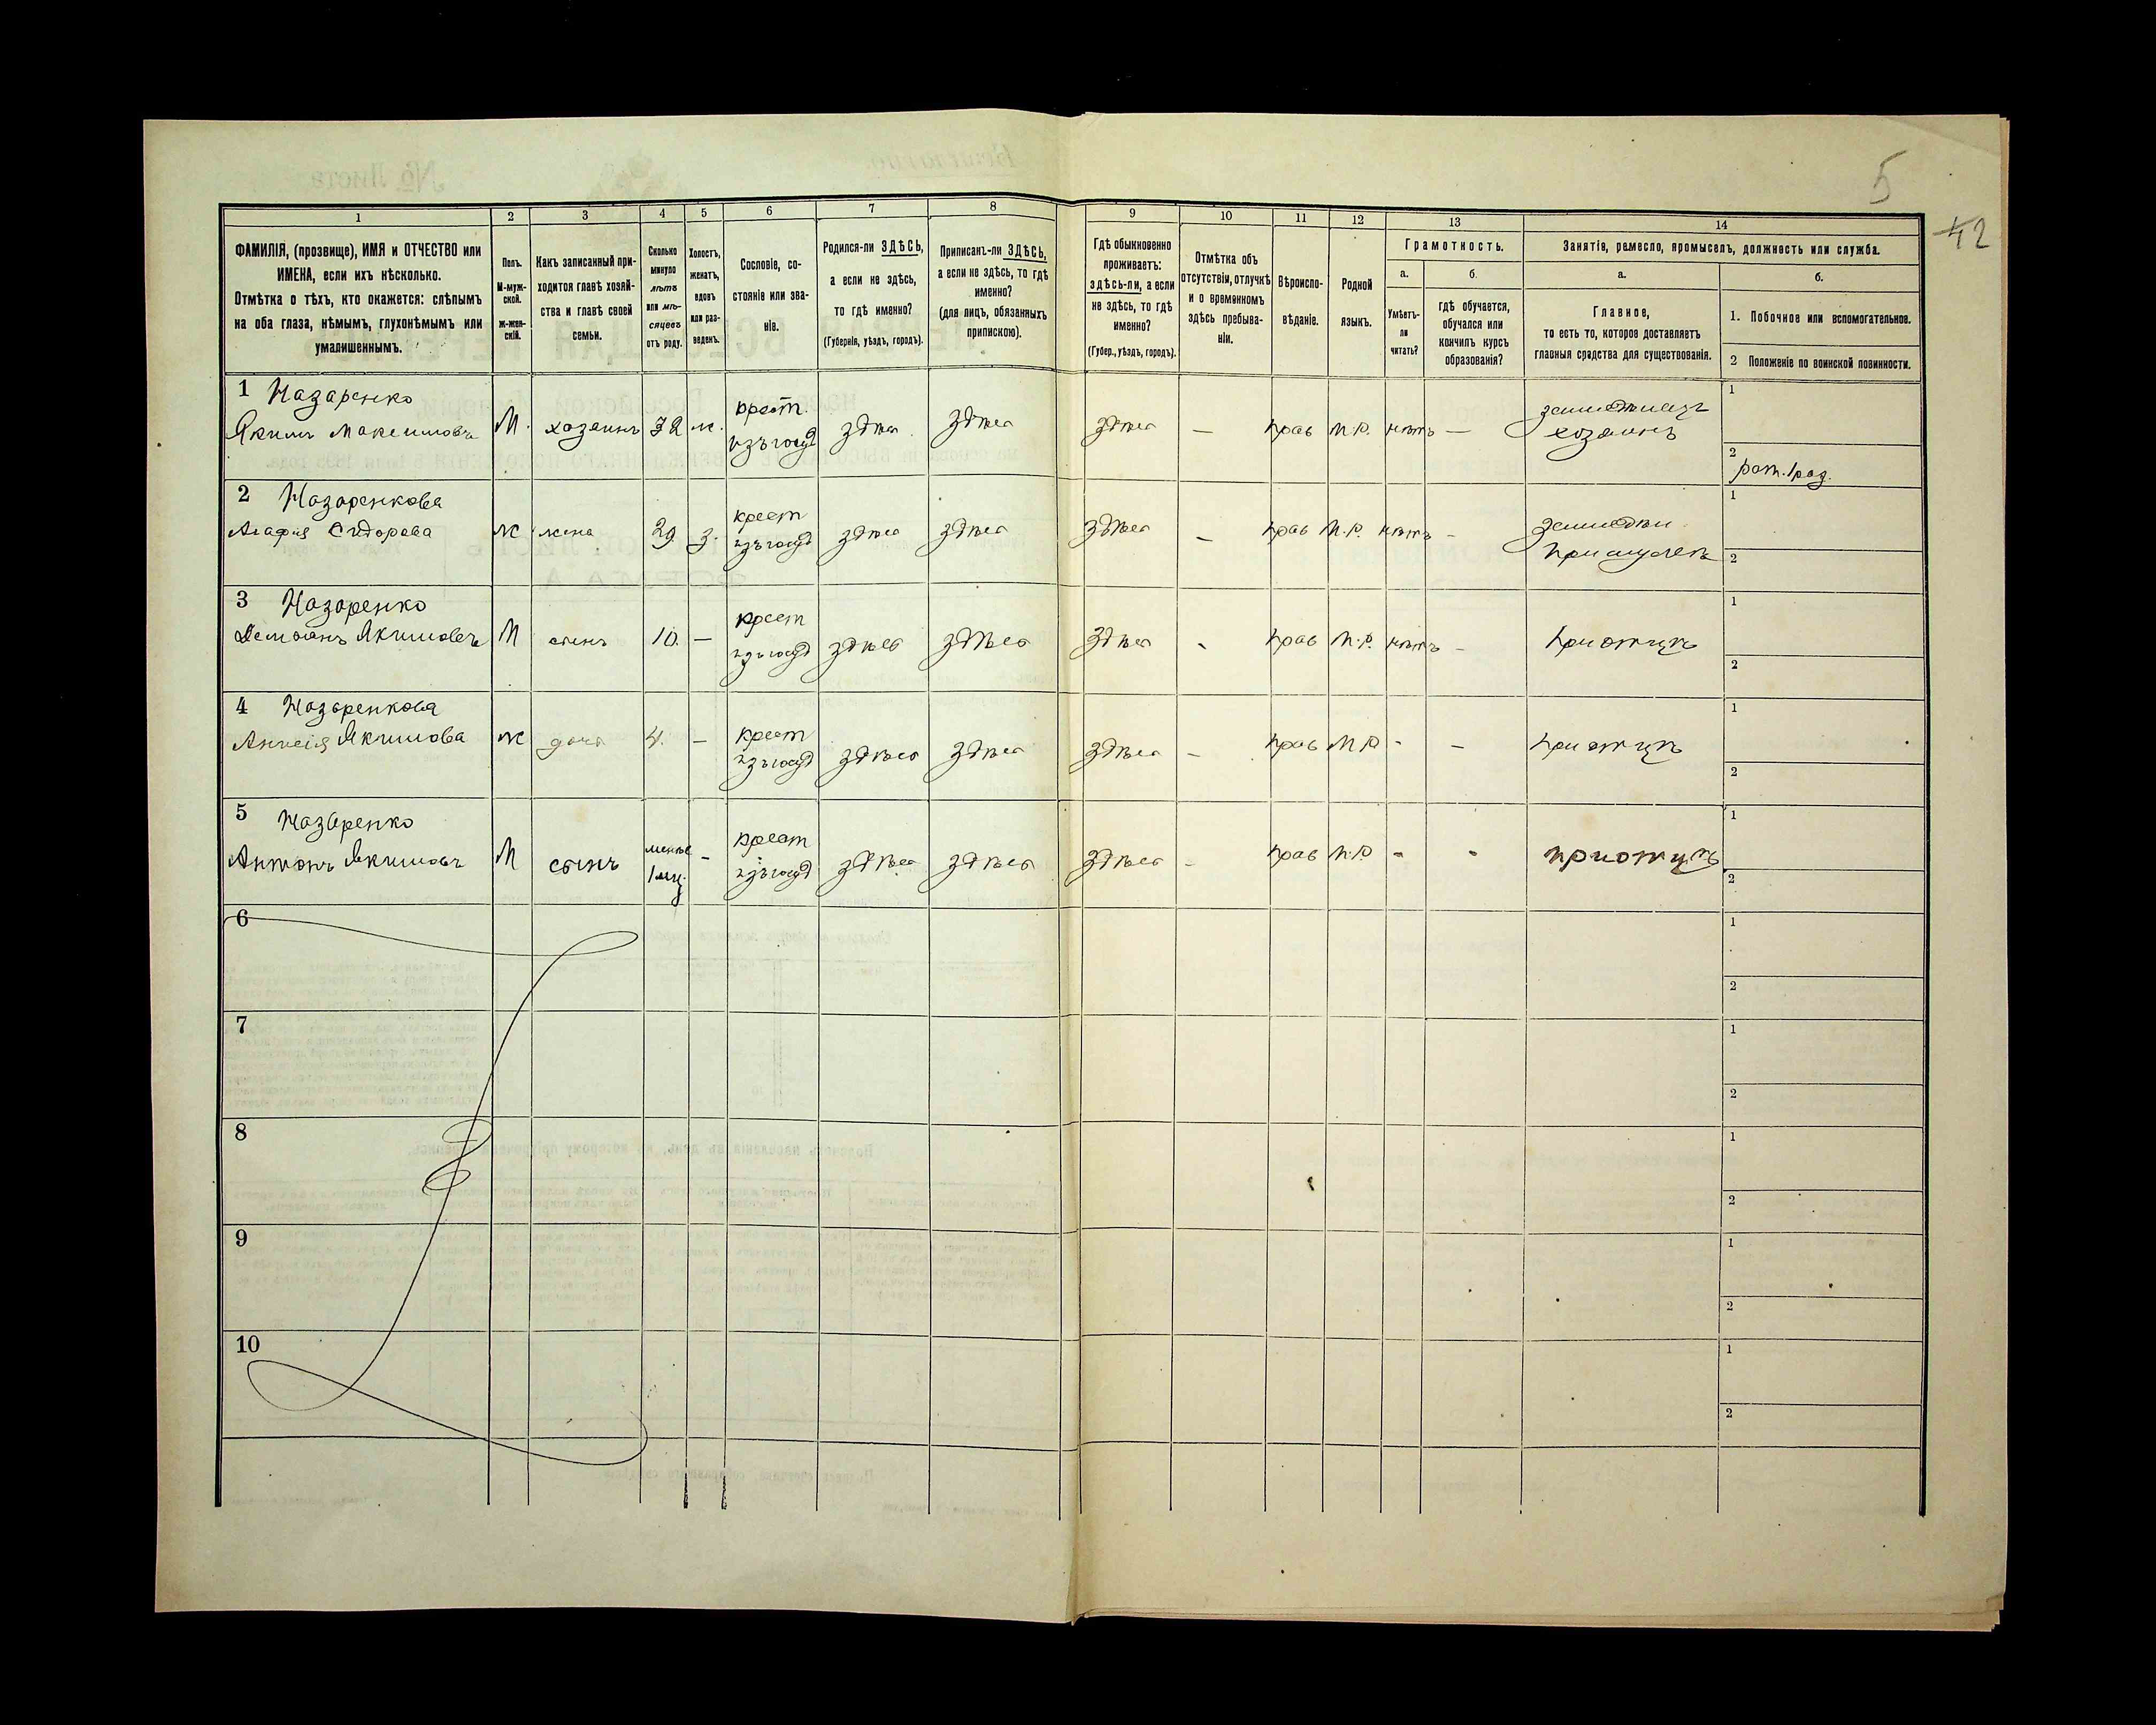 5
42
1
2
3
4
5
6
7
8
9
10
11
12
13
14
ФАМИЛІЯ, (прозвище), ИМЯ и ОТЧЕСТВО или
ИМЕНА, если ихъ нѣсколько.
Отмѣтка о тѣхъ, кто окажется: слѣпымъ
на оба глаза, нѣмымъ, глухонѣмымъ или
умалишеннымъ.
Полъ.
М-муж-
ской.
Ж-жен-
скій.
Какъ записанный при-
ходится главѣ хозяй-
ства и главѣ своей
семьи.
Сколько
минуло
лѣтъ
или мѣ-
сяцевъ
отъ роду.
Холостъ,
женатъ,
вдовъ
или раз-
веденъ.
Сословіе, со-
стояніе или зва-
ніе.
Родился-ли ЗДѢСЬ,
а если не здѣсь,
то гдѣ именно?
(Губернія, уѣздъ, городъ).
Приписанъ-ли ЗДѢСЬ,
а если не здѣсь, то гдѣ
именно?
(для лицъ, обязанныхъ
припискою).
Гдѣ обыкновенно
проживаетъ:
здѣсь-ли, а если
не здѣсь, то гдѣ
именно?
(Губер., уѣздъ, городъ).
Отмѣтка объ
отсутствіи, отлучкѣ
и о временномъ
здѣсь пребыва-
ніи.
Вѣроиспо-
вѣданіе.
Родной
языкъ.
Грамотность.
а.
Умѣетъ-
ли
читать?
б.
гдѣ обучается,
обучался или
кончилъ курсъ
образованія?
Занятія, ремесло, промыселъ, должность или служба.
а.
Главное,
то есть то, которое доставляетъ
главныя средства для существованія.
б.
1. Побочное или вспомогательное.
2 Положеніе по воинской повинности.
1 Назаренко
Якимъ Максимовъ
М.
хозяинъ
32
ж.
крест.
изъ госуд
здѣсь
здѣсь
здѣсь
—
прав
м.р.
нѣтъ
—
хозяинъ
1
2
рат. 1 раз.
2 Назаренкова
Агафія Сидорова
ж
жена
29
з.
крест
изъ госуд
здѣсь
здѣсь
здѣсь
-
прав
м.р.
нѣтъ
-
1
2
3 Назаренко
Демьянъ Якимовъ
М
сынъ
10.
—
крест
изъ госуд
здѣсь
здѣсь
здѣсь
-
прав
м.р.
нѣтъ
-
при отцѣ
1
2
4 Назаренкова
Якимова
ж
дочь
4.
—
крест
изъ госуд
здѣсь
здѣсь
здѣсь
-
прав
м.р
-
-
при отцѣ
1
2
5 Назаренко
Антонъ Якимовъ
М
сынъ
менѣе
1 мц.
-
крест
изъ госуд
здѣсь
здѣсь
здѣсь
-
прав
м.р
-
-
при отцѣ
1
2
6
1
2
7
1
2
8
1
2
9
1
2
10
1
2